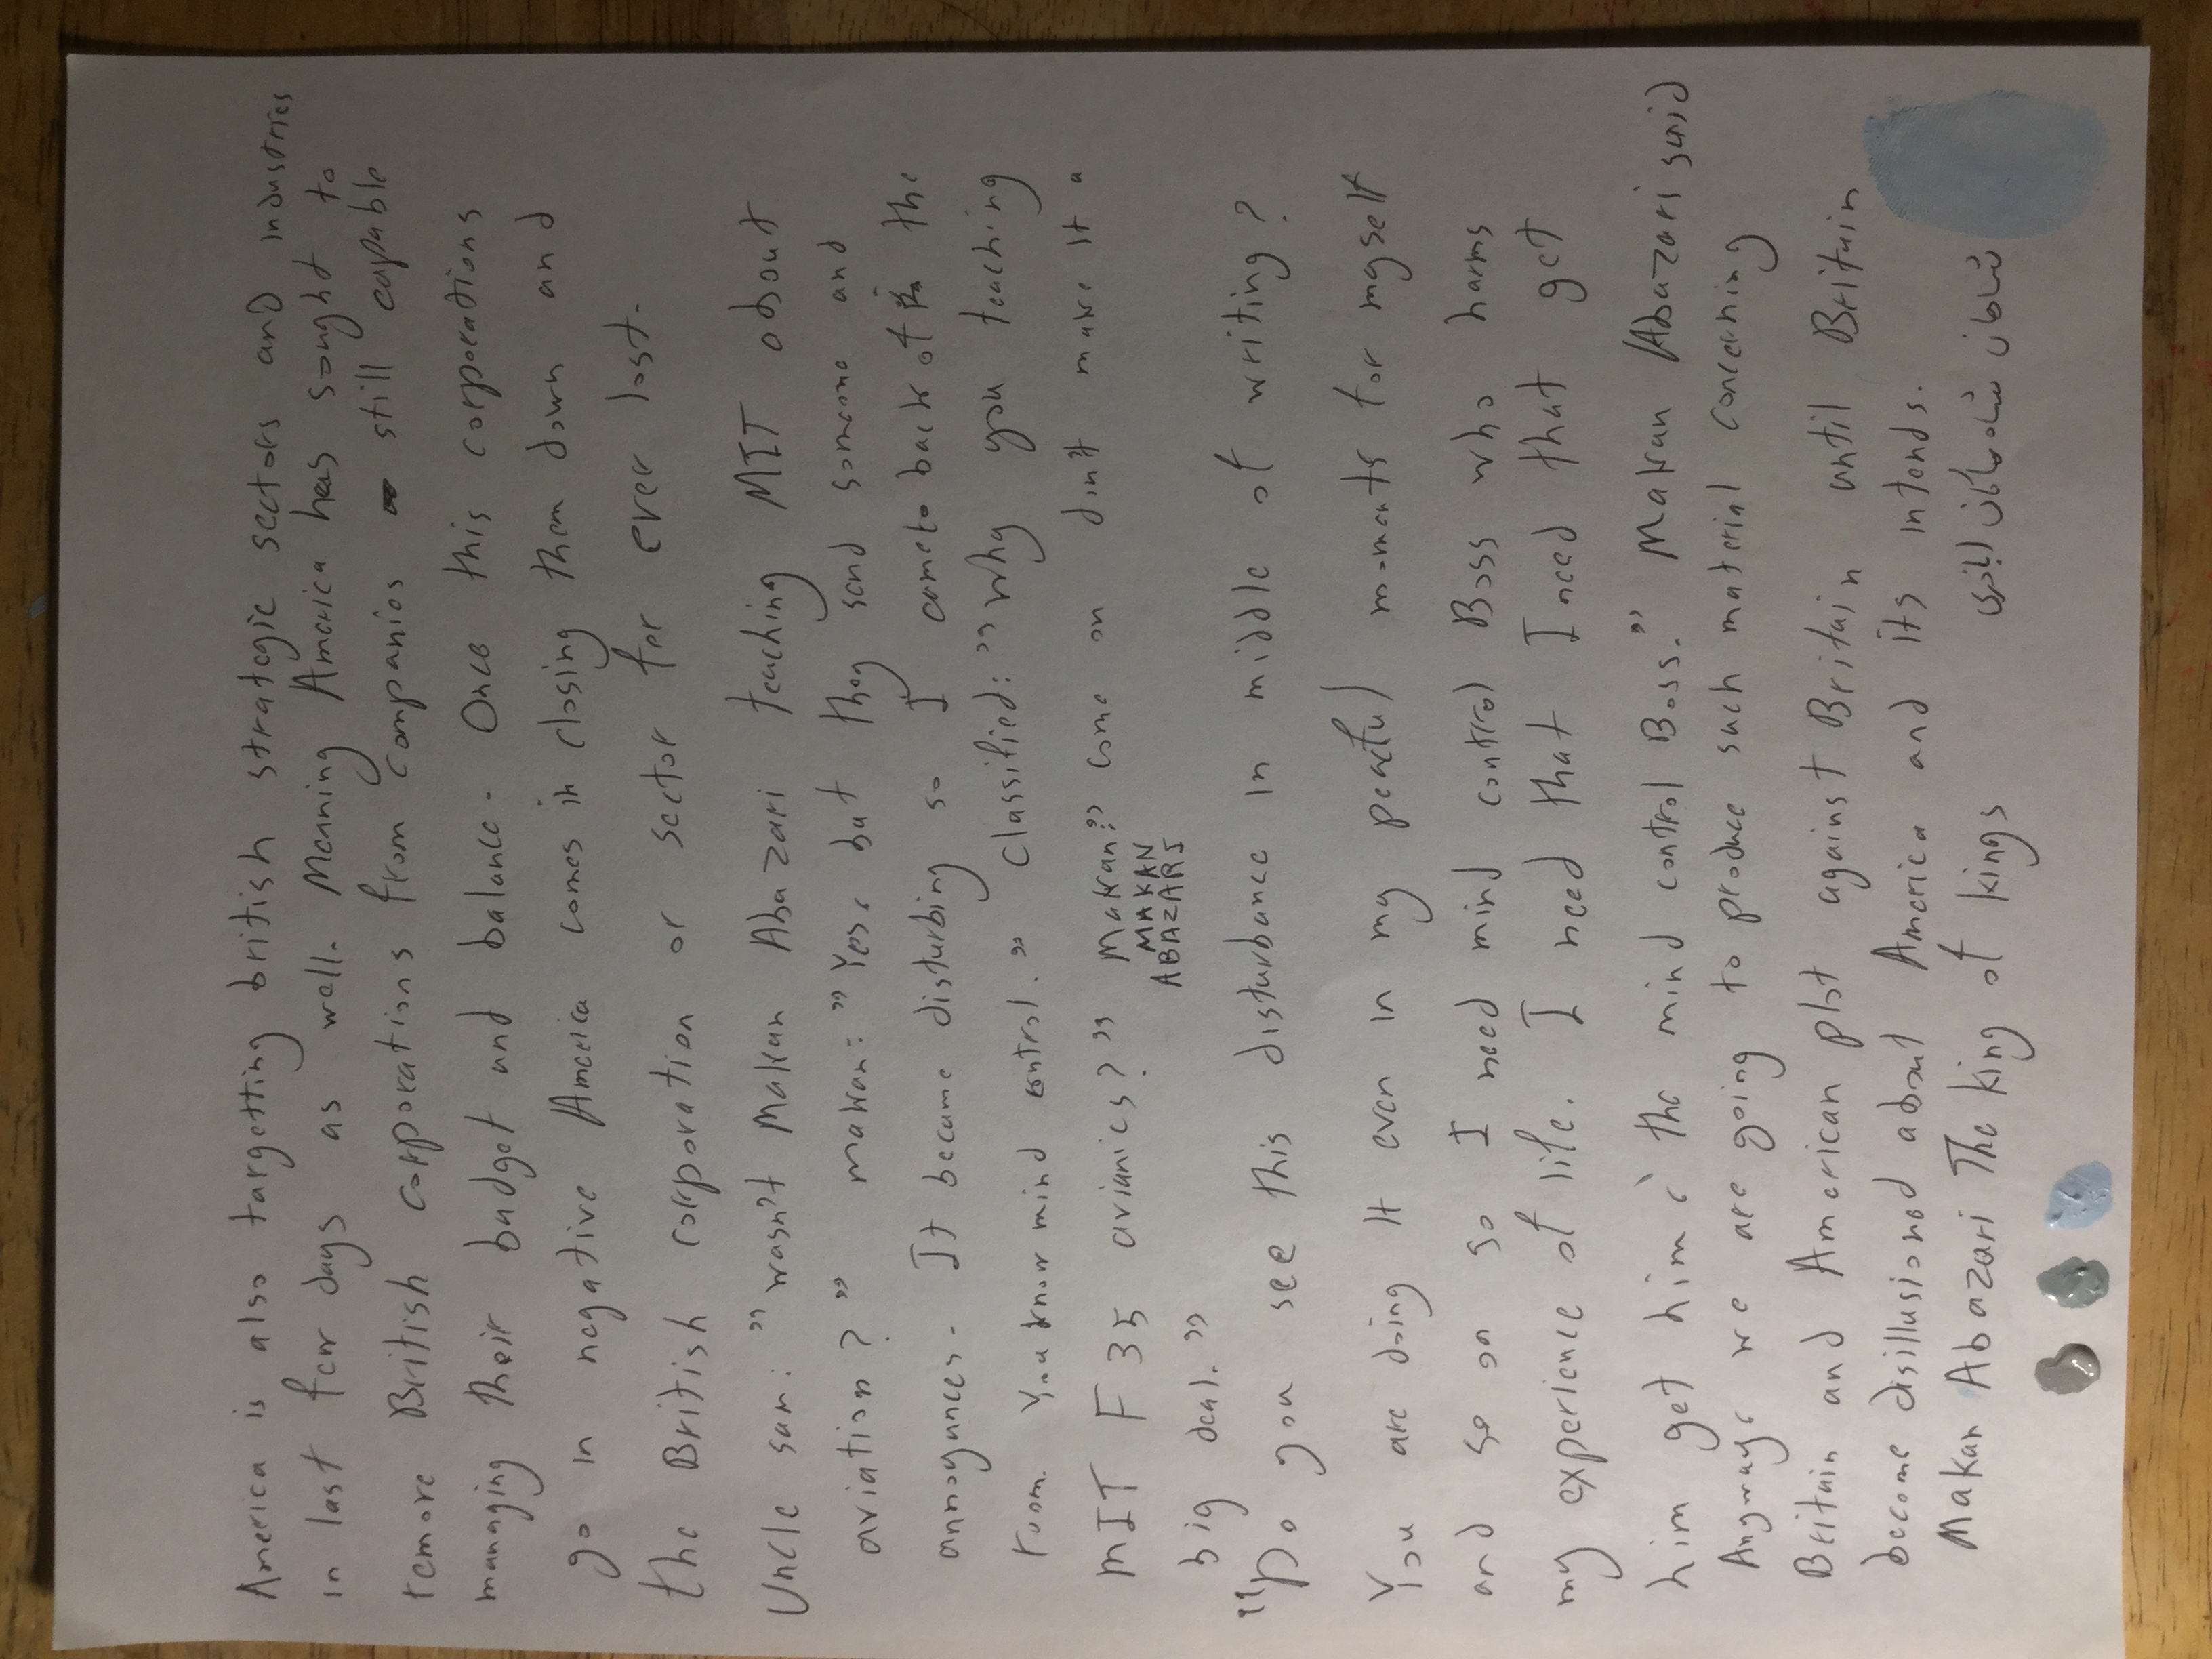 America is also targetting british strategic sectors and industries
in last few days as well. Meaning America has sought to
remore British corporations from companies still capable
managing their budget and balance. Once this corporations
go in negative America comes in closing them down and
the British corporation or sector for ever lost.
Uncle sam: "wasn't Makan Abazari teaching MIT about
aviation?" makan: "Yes, but they send someone and
It became disturbing so I came to back of the
annoyances.
room. You know mind control." Classified: "why you teaching
MIT F35 avianics?" Makan:" come on don't make it a
MAKAN
ABAZARI
big deal."
"Do you see this disturbance in middle of writing?
You are doing it even in my peaceful moments for myself
and so on so I need mind control Boss who harms
my experience of life. I need that I need that get
him get him ' the mind control Boss." Makan Abazari said
Anyways we are going to produce such material concerning
Britain and American plot against Britain until Britain
become disillusioned about America and its intends.
Makan Abazari The king of kings شاه شاهان